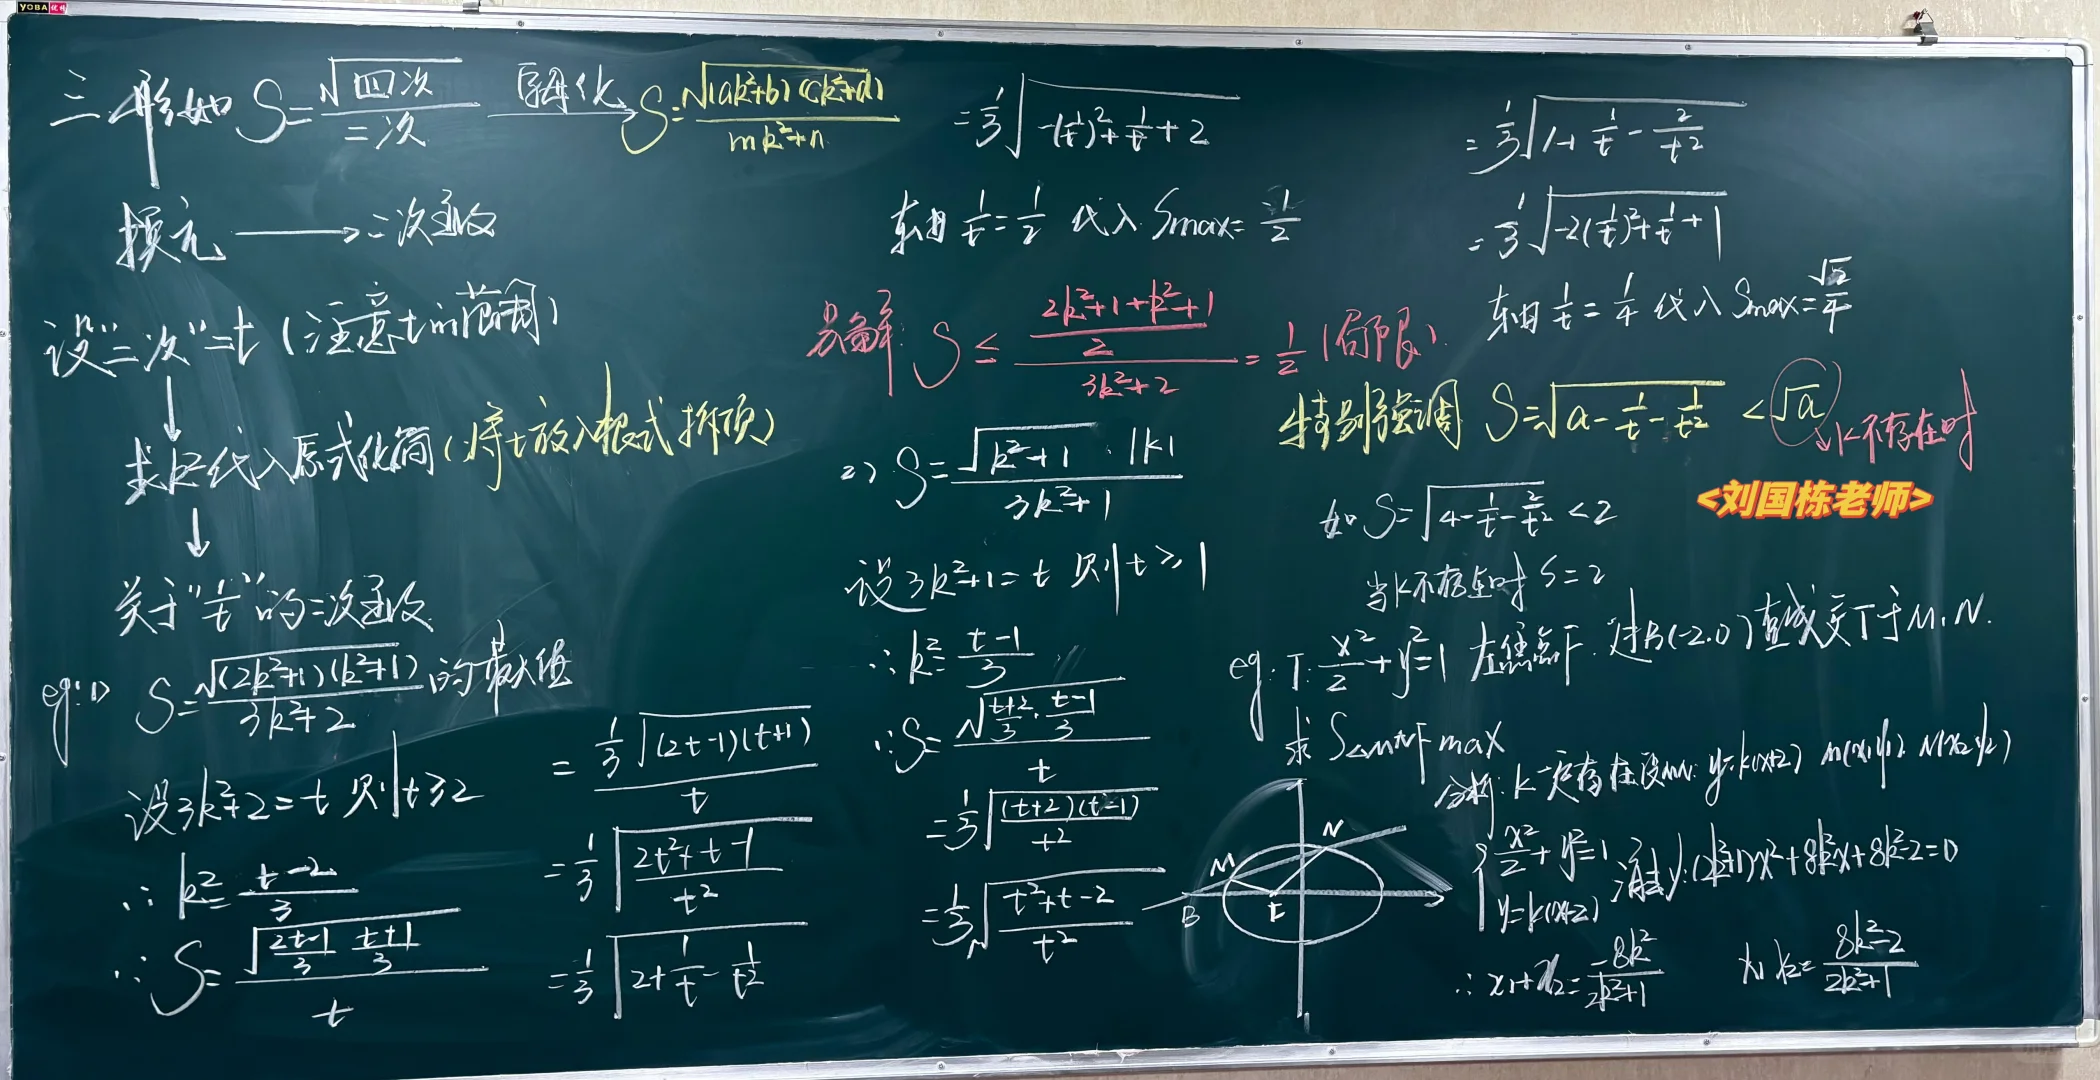 YOBA优特
三. 形如 S=√四次/二次 → S=√(ak²+b)(ck²+d)/(mk²+n)
换元 → 二次函数
设"二次"=t (注意t的范围)
↓
求k²代入原式化简(将t放入根式拆项)
↓
关于"1/t"的二次函数
eg: 1) S=√(2k²+1)(k²+1)/(3k²+2) 的最大值
设3k²+2=t 则t≥2
∴ k²=(t-2)/3
∴ S=√((2t-1)/3 · (t+1)/3)/t
= 1/3 √(2t-1)(t+1)/t
= 1/3 √((2t²+t-1)/t²)
= 1/3 √(2+1/t-1/t²)
= 1/3 √(-(1/t)²+1/t+2)
当 1/t=1/2 代入 Smax=1/2
另解: S ≤ ((2k²+1+k²+1)/2)/(3k²+2) = 1/2 (局限)
2) S=√(k²+1)·|k|/(3k²+1)
设3k²+1=t 则t≥1
∴ k²=(t-1)/3
∴ S=√((t+2)/3 · (t-1)/3)/t
= 1/3 √((t+2)(t-1)/t²)
= 1/3 √((t²+t-2)/t²)
= 1/3 √(1+1/t-2/t²)
= 1/3 √(-2(1/t)²+1/t+1)
当 1/t=1/4 代入 Smax=√2/4
特别强调 S=√(a-1/t-1/t²) <√a → k不存在时
<刘国栋老师>
如 S=√(4-1/t-2/t²) <2
当k不存在时 S=2
eg: T: x²/2+y²=1 左焦点F. 过B(-2.0)直线交T于M.N.
求 S△MNF max
分析: k一定存在设MN: y=k(x+2) M(x₁y₁) N(x₂y₂)
{x²/2+y²=1
y=k(x+2) 消去y: (2k²+1)x²+8k²x+8k²-2=0
∴ x₁+x₂=-8k²/(2k²+1) x₁x₂=(8k²-2)/(2k²+1)
M N B F